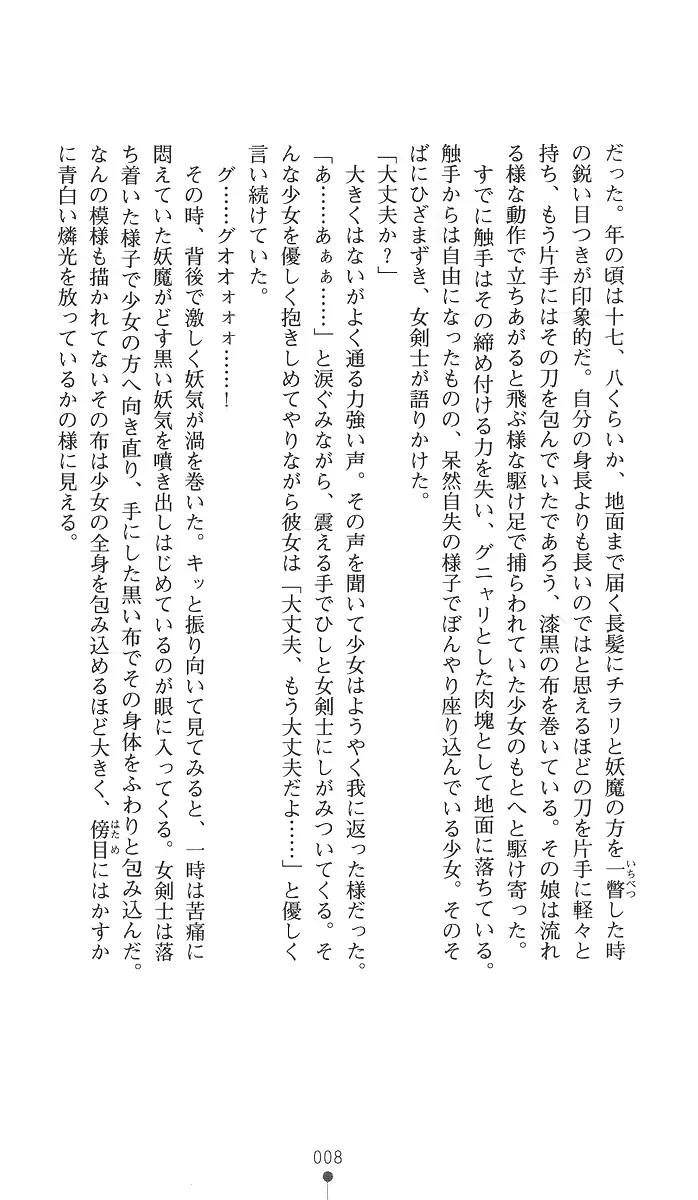 だった。年の頃は十七、八くらいか、地面まで届く長髪にチラリと妖魔の方を一瞥した時
いちべつ
の鋭い目つきが印象的だ。自分の身長よりも長いのではと思えるほどの刀を片手に軽々と
持ち、もう片手にはその刀を包んでいたであろう、漆黒の布を巻いている。その娘は流れ
る様な動作で立ちあがると飛ぶ様な駆け足で捕らわれていた少女のもとへと駆け寄った。
すでに触手はその締め付ける力を失い、グニャリとした肉塊として地面に落ちている。
触手からは自由になったものの、呆然自失の様子でぼんやり座り込んでいる少女。そのそ
ばにひざまずき、女剣士が語りかけた。
「大丈夫か？」
大きくはないがよく通る力強い声。その声を聞いて少女はようやく我に返った様だった。
「あ……あぁぁ……」と涙ぐみながら、震える手でひしと女剣士にしがみついてくる。そ
んな少女を優しく抱きしめてやりながら彼女は「大丈夫、もう大丈夫だよ……」と優しく
言い続けていた。
グ……グオオォォォ……！
その時、背後で激しく妖気が渦を巻いた。キッと振り向いて見てみると、一時は苦痛に
悶えていた妖魔がどす黒い妖気を噴き出しはじめているのが眼に入ってくる。女剣士は落
ち着いた様子で少女の方へ向き直り、手にした黒い布でその身体をふわりと包み込んだ。
なんの模様も描かれてないその布は少女の全身を包み込めるほど大きく、傍目にはかすか
はため
に青白い燐光を放っているかの様に見える。
008